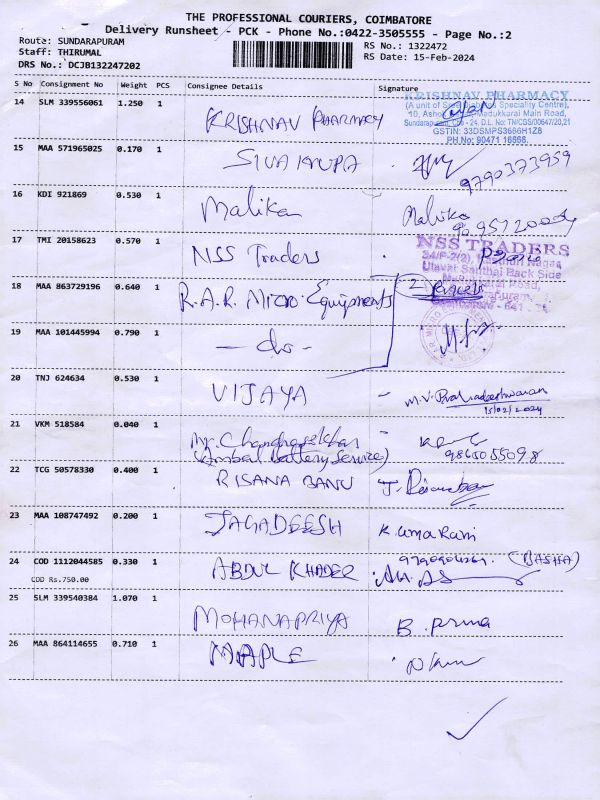 THE PROFESSIONAL COURIERS, COIMBATORE
Delivery Runsheet - PCK - Phone No.:0422-3505555 - Page No.:2
Route: SUNDARAPURAM
Staff: THIRUMAL
DRS No.: DCJB132247202
RS No.: 1322472
RS Date: 15-Feb-2024
S No Consignment No Weight PCS Consignee Details Signature
14 SLM 339556061 1.250 1 KRISHNAV PHARMACY
KRISHNAV PHARMACY
Speciality Centre),
Madukkarai Main Road,
GSTIN: 33DSMPS3666H1Z8
PH No: 90471 16666.
15 MAA 571965025 0.170 1 SIVA KRUPA
9790373959
16 KDI 921869 0.530 1 Malika Malika
17 TMI 20158623 0.570 1 NSS Traders
NSS TRADERS
Back Side
18 MAA 863729196 0.640 1 R.A.R. Micro Equipments
19 MAA 101445994 0.790 1 - do -
20 TNJ 624634 0.530 1 VIJAYA
15/02/2024
21 VKM 518584 0.040 1 Mr. Chandrasekhar
(Ambal battery Service)
9865055098
22 TCG 50578330 0.400 1 RISANA BANU
23 MAA 108747492 0.200 1 JAGADEESH K. Uma Rani
24 COD 1112044585 0.330 1 ABDUL KHADER (BASHA)
COD Rs.750.00
25 SLM 339540384 1.070 1 MOHANAPRIYA
26 MAA 864114655 0.710 1 MAPLE